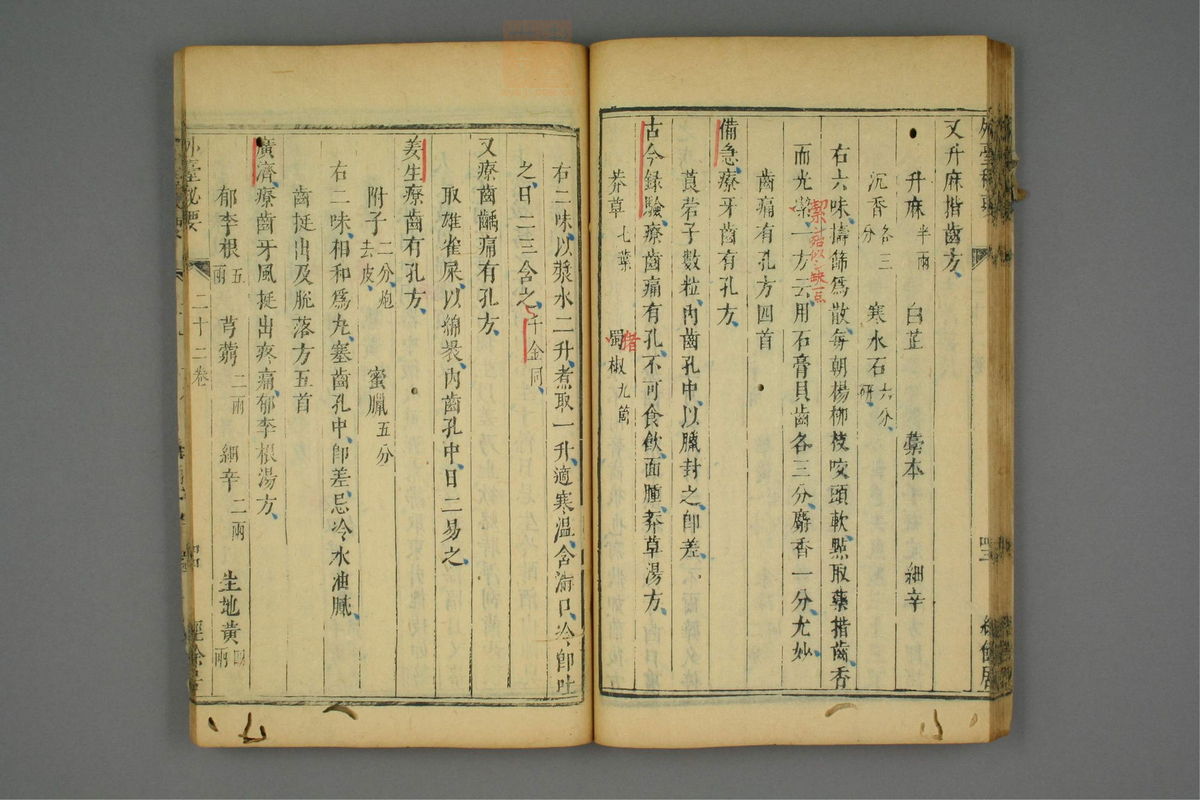 又升麻揩齒方
升麻半兩 白芷 藁本 細辛
沉香各三分 寒水石六分研
右六味擣篩爲散每朝楊柳枝咬頭軟點取藥揩齒香
而光潔一方云用石膏貝齒各三分麝香一分尤妙
齒痛有孔方四首
備急療牙齒有孔方
莨菪子數粒內齒孔中以臘封之卽差
古今録驗療齒痛有孔不可食飲面腫莽草湯方
莽草七葉 蜀椒九箇
右二味以漿水二升煮取一升適寒溫含滿口冷卽吐
之日二三含之千金同
又療齒齲痛有孔方
取雄雀屎以綿裹內齒孔中日二易之
姜生療齒有孔方
附子二分炮去皮 蜜臘五分
右二味相和爲丸塞齒孔中卽差忌冷水油膩
齒挺出及脫落方五首
廣濟療齒牙風挺出疼痛郁李根湯方
郁李根五兩 芎藭二兩 細辛二兩 生地黃四兩
外臺秘要
二十二卷